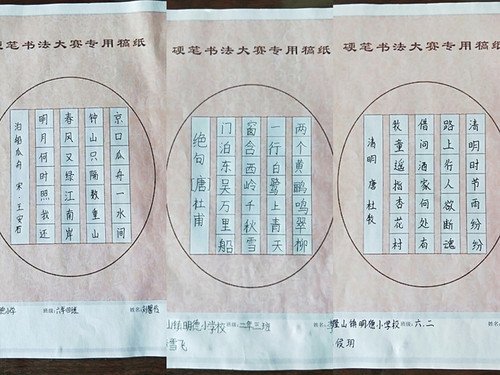 笔书法大赛专用稿纸
京口瓜舟一水间
钟山只隔数重山
春风又绿江南岸
明月何时照我还
泊船瓜舟 宋·王安石
班级:六年四班 姓名:
硬笔书法大赛专用稿纸
两个黄鹂鸣翠柳
一行白鹭上青天
窗含西岭千秋雪
门泊东吴万里船
绝句[唐]杜甫
山镇明德小学校 班级:二年三班
雪飞
硬笔书法大赛专用稿纸
清明时节雨纷纷
路上行人欲断魂
借问酒家何处有
牧童遥指杏花村
清明 唐 杜牧
山镇明德小学校 班级:六.二 姓名
侯玥